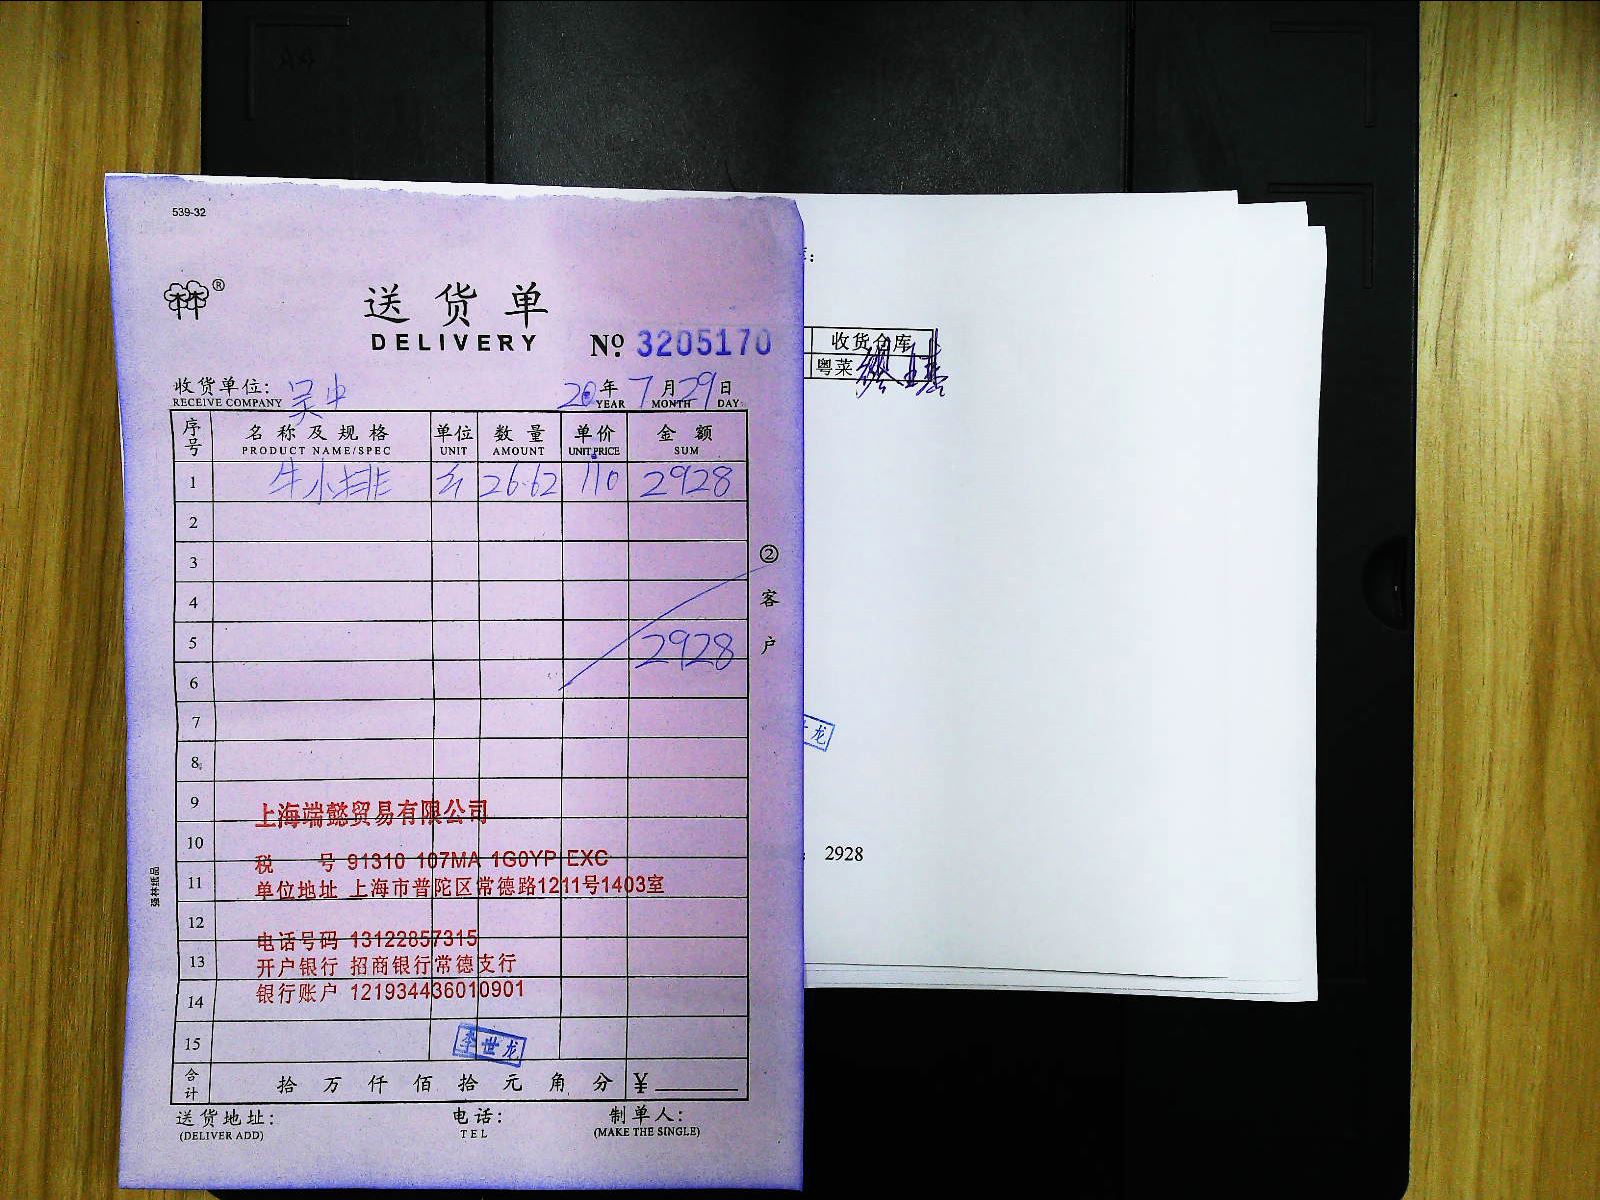 539-32
送货单
DELIVERY
№ 3205170
收货单位: 吴中
RECEIVE COMPANY
20年7月29日
YEAR MONTH DAY
序号 名称及规格 单位 数量 单价 金额
PRODUCT NAME/SPEC UNIT AMOUNT UNIT PRICE SUM
1 牛小排 斤 26.62 110 2928
2
3
4
5 2928
6
7
8
9
10
11
12
13
14
15
② 客户
上海端懿贸易有限公司
税 号 91310 107MA 1G0YP EXC
单位地址 上海市普陀区常德路1211号1403室
电话号码 13122857315
开户银行 招商银行常德支行
银行账户 121934436010901
李世龙
合计 拾万仟佰拾元角分 ¥
送货地址: 电话: 制单人:
(DELIVER ADD) TEL (MAKE THE SINGLE)
强林纸品
收货仓库
粤菜
龙
2928